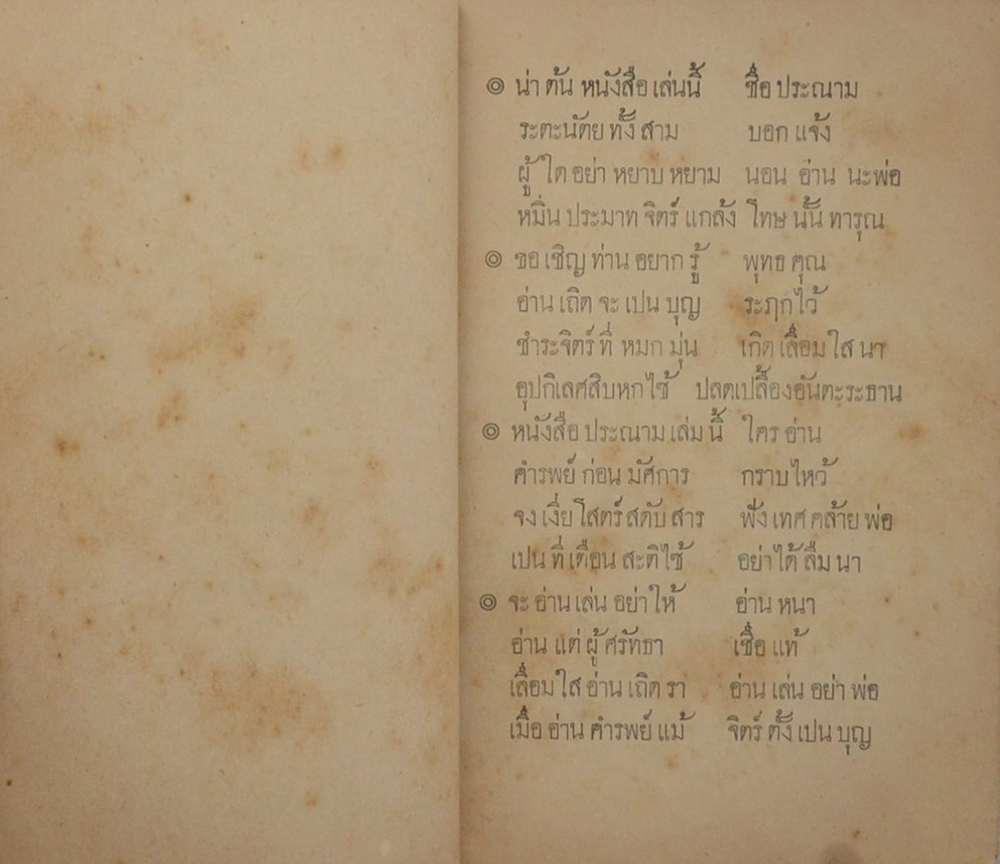 ๏ น่า ต้น หนังสือ เล่นนี้ ชื่อ ประณาม
ระตะนัตัย ทั้ง สาม บอก แจ้ง
ผู้ ใด อย่า หยาบ หยาม นอน อ่าน นะพ่อ
หมิ่น ประมาท จิตร์ แกล้ง โทษ นั้น ทารุณ
๏ ขอ เชิญ ท่าน อยาก รู้ พุทธ คุณ
อ่าน เถิด จะ เปน บุญ ระฦกไว้
ชำระจิตร์ ที่ หมก มุ่น เกิด เลื่อม ใส นา
อุปกิเลศสิบหก ไซ้ ปลดเปลื้องอันตะระธาน
๏ หนังสือ ประณาม เล่ม นี้ ใคร อ่าน
คำรพย์ ก่อน มัศการ กราบ ไหว้
จง เงี่ย โสตร์ สดับ สาร ฟัง เทศ คล้าย พ่อ
เปน ที่ เตือน สะติ ไซ้ อย่า ได้ ลืม นา
๏ จะ อ่าน เล่น อย่า ให้ อ่าน หนา
อ่าน แต่ ผู้ ศรัทธา เชื่อ แท้
เลื่อม ใส อ่าน เถิด รา อ่าน เล่น อย่า พ่อ
เมื่อ อ่าน คำรพย์ แม้ จิตร์ ตั้ง เปน บุญ